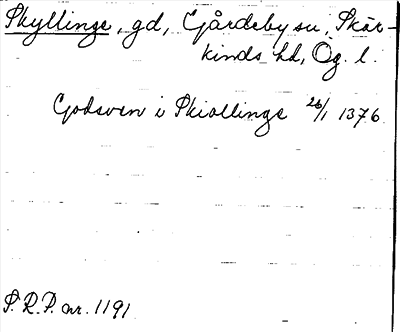 Skyllinge, gd, Gårdeby sn, Skär-
kinds hd, Ög. l.
Godsven i Skiællinge 26/1 1376
S. R. P. nr. 1191